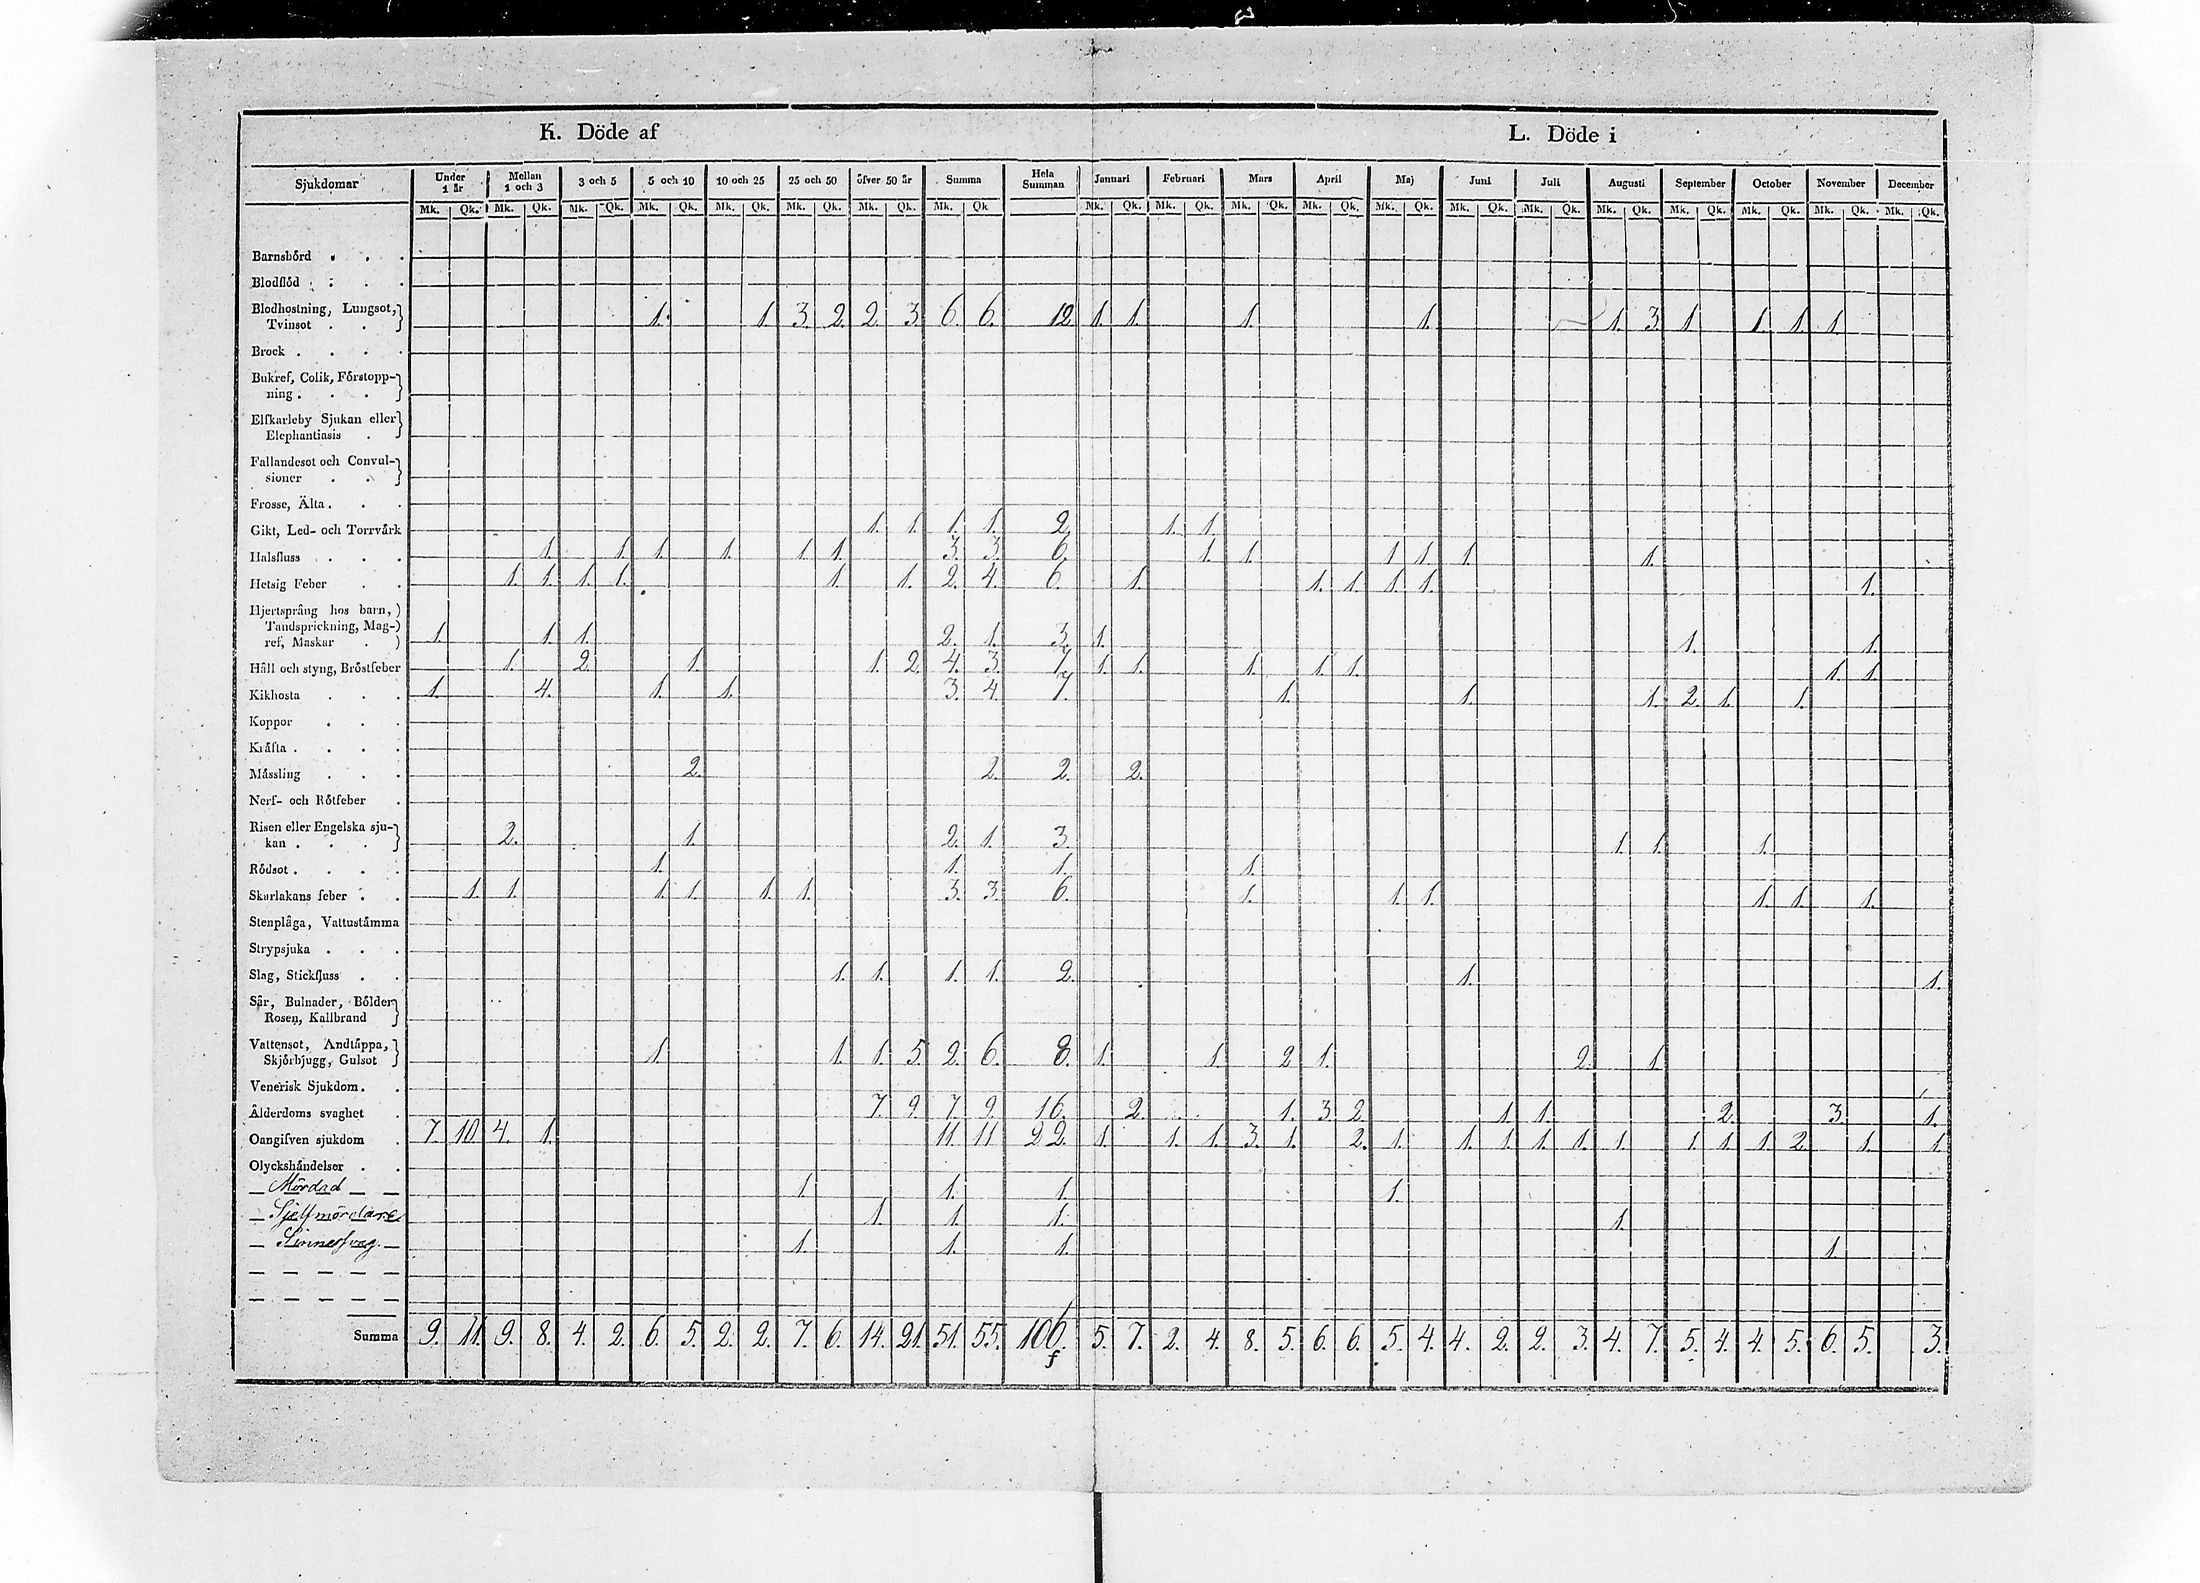 K. Döde af L. Döde i
Sjukdomar Under 1 år Mellan 1 och 3 3 och 5 5 och 10 10 och 25 25 och 50 öfver 50 år Summa Hela Summan Januari Februari Mars April Maj Juni Juli Augusti September October November December
Mk. Qk. Mk. Qk. Mk. Qk. Mk. Qk. Mk. Qk. Mk. Qk. Mk. Qk. Mk. Qk Mk. Qk. Mk. Qk. Mk. Qk. Mk. Qk. Mk. Qk. Mk. Qk. Mk. Qk. Mk. Qk. Mk. Qk. Mk. Qk. Mk. Qk. Mk. Qk.
Barnsbörd . . .
Blodflöd . . . .
Blodhostning, Lungsot,
Tvinsot . . 1. 1. 3. 2. 2. 3. 6. 6. 12 1. 1. 1. 1. 1. 3. 1 1. 1. 1
Brock . . . .
Bukref, Colik, Förstopp-
ning . . .
Elfkarleby Sjukan eller
Elephantiasis .
Fallandesot och Convul-
sioner . .
Frosse, Älta . . .
Gikt, Led- och Torrvärk 1. 1. 1. 1. 2. 1. 1.
Halsfluss . . . 1. 1. 1. 1. 1. 1. 3. 3. 6. 1. 1. 1. 1. 1. 1.
Hetsig Feber . . 1. 1. 1. 1. 1. 1. 2. 4. 6. 1. 1. 1. 1. 1. 1.
Hjertsprång hos barn,
Tandsprickning, Mag-
ref, Maskar . 1. 1. 1. 2. 1. 3. 1. 1. 1.
Håll och styng, Bröstfeber 1. 2. 1. 1. 2. 4. 3. 7. 1. 1. 1. 1. 1. 1. 1.
Kikhosta . . . 1. 4. 1. 1. 3. 4. 7. 1. 1. 1. 2. 1. 1.
Koppor . . .
Kräfta . . . .
Mässling . . . 2. 2. 2. 2.
Nerf- och Rötfeber .
Risen eller Engelska sju-
kan . . . 2. 1. 2. 1. 3. 1. 1. 1.
Rödsot . . . . 1. 1. 1. 1.
Skarlakans feber . . 1. 1. 1. 1. 1. 1. 3. 3. 6. 1. 1. 1. 1. 1. 1.
Stenplåga, Vattustämma
Strypsjuka . . .
Slag, Stickfluss . . 1. 1. 1. 1. 2. 1. 1.
Sår, Bulnader, Bölder
Rosen, Kallbrand
Vattensot, Andtäppa,
Skjörbjugg, Gulsot 1. 1. 1. 5. 2. 6. 8. 1. 1. 2 1. 2. 1
Venerisk Sjukdom . .
Ålderdoms svaghet . 7. 9. 7. 9. 16. 2. 1. 3. 2. 1. 1. 2. 3. 1.
Oangifven sjukdom . 7. 10. 4. 1. 11. 11. 22. 1. 1. 1. 3. 1. 2. 1. 1. 1. 1. 1. 1. 1. 1. 1. 2. 1. 1.
Olyckshändelser . .
Mördad 1. 1. 1. 1.
Sjelfmördare 1. 1. 1. 1.
Sinnesswag 1. 1. 1. 1.
Summa 9. 11. 9. 8. 4. 2. 6. 5. 2. 2. 7. 6. 14. 21. 51. 55. 106. 5. 7. 2. 4. 8. 5. 6. 6. 5. 4. 4. 2. 2. 3. 4. 7. 5. 4. 4. 5. 6. 5. 3.